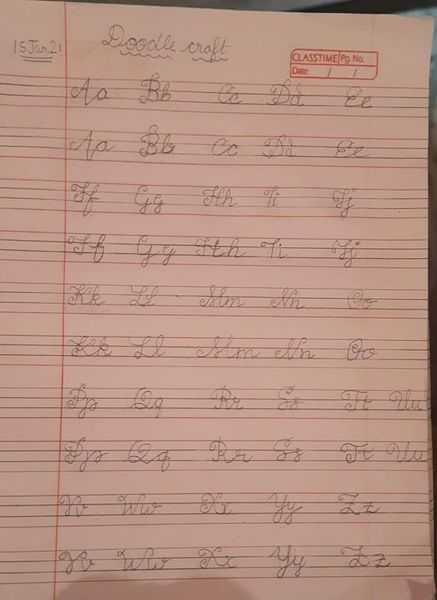 15 Jan. 21
Doodle craft
CLASSTIME Pg. No.
Date / /
Aa Bb Cc Dd Ee
Aa Bb Cc Dd Ee
Ff Gg Hh Ii Jj
Ff Gg Hh Ii Jj
Kk Ll Mm Nn Oo
Kk Ll Mm Nn Oo
Pp Qq Rr Ss Tt Uu
Pp Qq Rr Ss Tt Uu
Vv Ww Xx Yy Zz
Vv Ww Xx Yy Zz